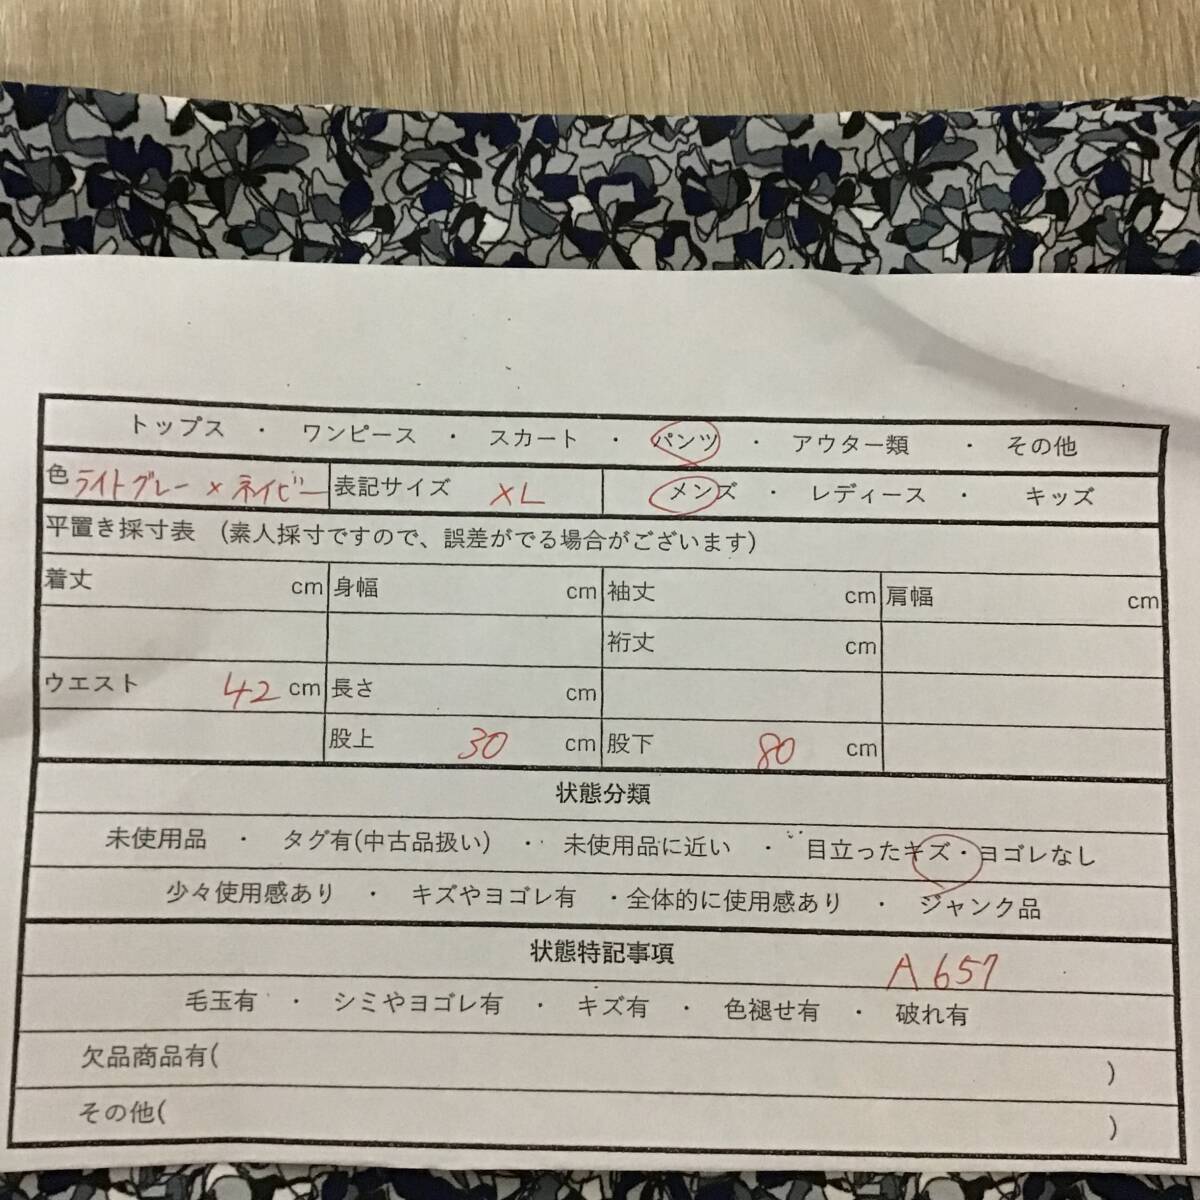 トップス ・ ワンピース ・ スカート ・ パンツ ・ アウター類 ・ その他
色 ライトグレー×ネイビー 表記サイズ XL メンズ ・ レディース ・ キッズ
平置き採寸表 (素人採寸ですので、誤差がでる場合がございます)
着丈 cm 身幅 cm 袖丈 cm 肩幅 cm
裄丈 cm
ウエスト 42 cm 長さ cm
股上 30 cm 股下 80 cm
状態分類
未使用品 ・ タグ有(中古品扱い) ・ 未使用品に近い ・ 目立ったキズ・ヨゴレなし
少々使用感あり ・ キズやヨゴレ有 ・全体的に使用感あり ・ ジャンク品
状態特記事項 A657
毛玉有 ・ シミやヨゴレ有 ・ キズ有 ・ 色褪せ有 ・ 破れ有
欠品商品有( )
その他( )